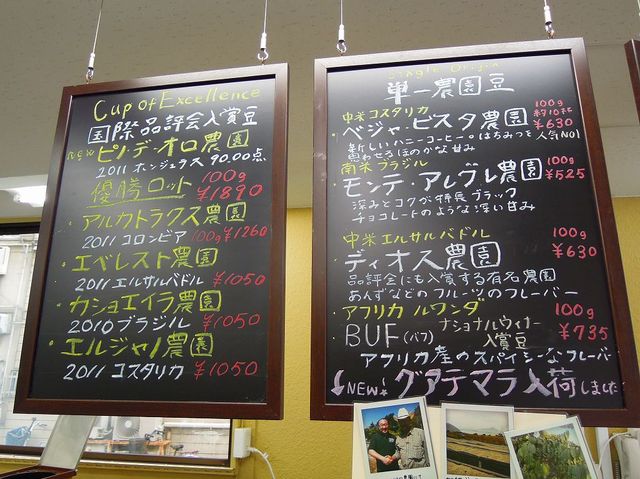 Cup of Excellence
国際品評会入賞豆
NEW ピノ・デ・オロ農園
2011 ホンジュラス 90.00点
優勝ロット 100g ¥1890
・アルカトラクス農園
2011 コロンビア 100g ¥1260
・エベレスト農園
2011 エルサルバドル ¥1050
・カショエイラ農園
2010 ブラジル ¥1050
・エルジャノ農園
2011 コスタリカ ¥1050
Single Origin
単一農園豆
中米コスタリカ 100g
・ベジャ・ビスタ農園 ¥630
新しいハニーコーヒー。はちみつを 人気NO1
思わせるほのかな甘み
南米ブラジル 100g
・モンテ・アレグレ農園 ¥525
深みとコクが特長 ブラック
チョコレートのような深い甘み
中米エルサルバドル 100g
・ディオス農園 ¥630
品評会にも入賞する有名農園
あんずなどのフルーツのフレーバー
・アフリカ ルワンダ 100g
BUF(バフ) ナショナルウィナー入賞豆 ¥735
アフリカ産のスパイシーなフレーバー
NEW! グアテマラ入荷しました